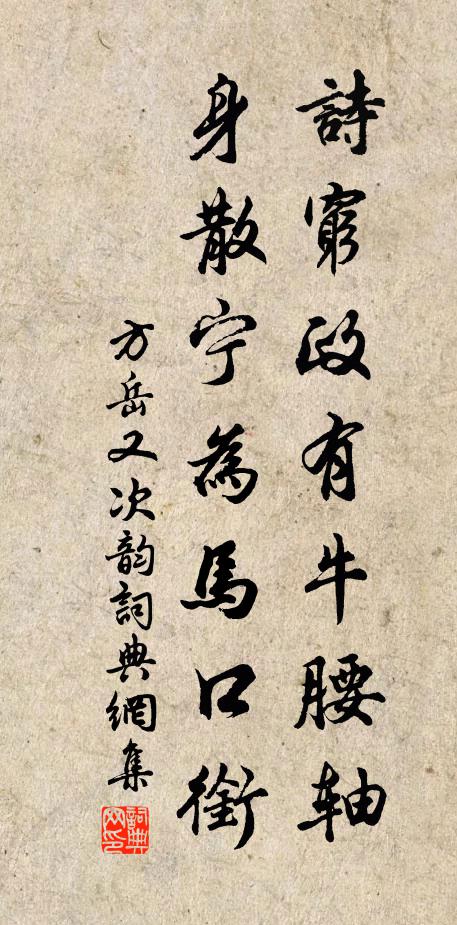 詩窮政有牛腰軸
身散宁為馬口銜
方岳又次韵詞典網集
詞典網印